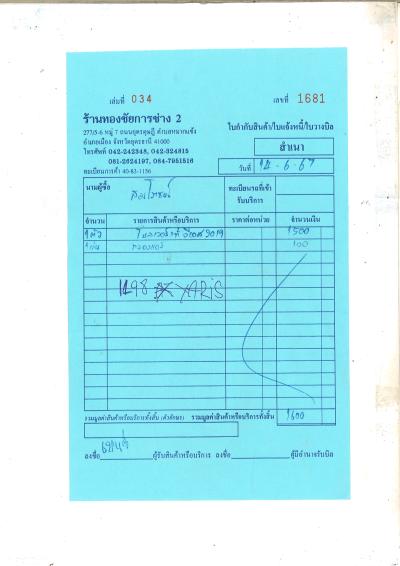 เล่มที่ 034
เลขที่ 1681
ร้านทองชัยการช่าง 2
277/5-6 หมู่ 7 ถนนอุดรดุษฎี ตำบลหมากแข้ง
อำเภอเมือง จังหวัดอุดรธานี 41000
โทรศัพท์ 042-242348, 042-324815
081-2624197, 084-7951516
ทะเบียนการค้า 40-83-1156
ใบกำกับสินค้า/ใบแจ้งหนี้/ใบวางบิล
สำเนา
วันที่ 14-6-67
นามผู้ซื้อ
ทะเบียนรถที่เข้า
รับบริการ
จำนวน รายการสินค้าหรือบริการ ราคาต่อหน่วย จำนวนเงิน
2019 1500
100
1198 YARiS
รวมมูลค่าสินค้าหรือบริการทั้งสิ้น (ตัวอักษร) รวมมูลค่าสินค้าหรือบริการทั้งสิ้น 1600
ลงชื่อ ผู้รับสินค้าหรือบริการ ลงชื่อ ผู้มีอำนาจรับบิล